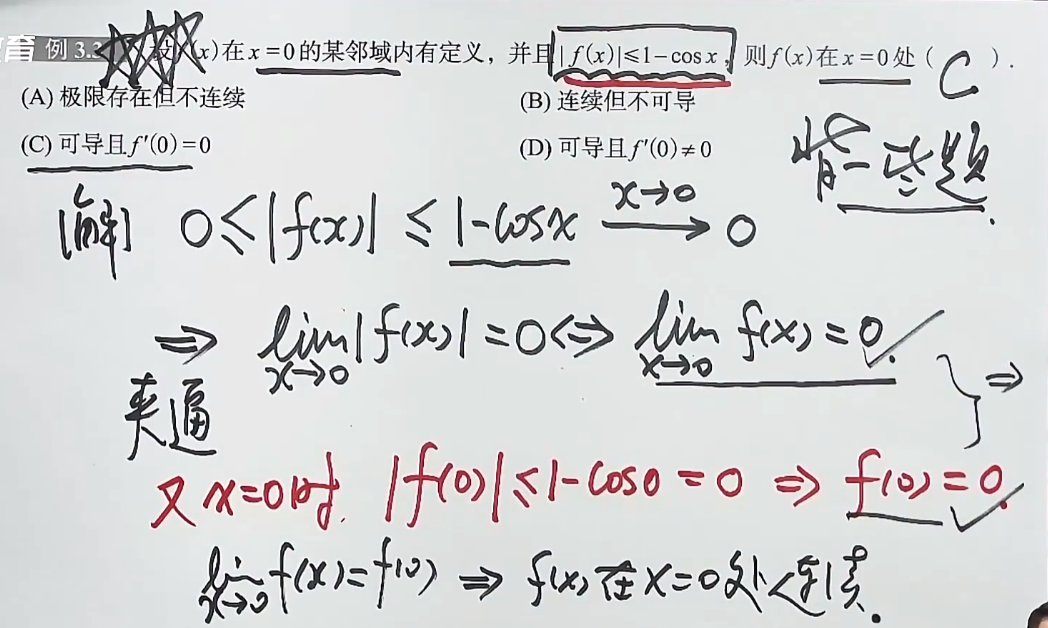 育 例 3.3 设f(x)在x=0的某邻域内有定义，并且|f(x)|≤1-cosx，则f(x)在x=0处( C ).
(A) 极限存在但不连续 (B) 连续但不可导
(C) 可导且f′(0)=0 (D) 可导且f′(0)≠0
背一些题.
[解] 0≤|f(x)|≤1-cosx x→0 → 0
⇒ lim x→0 |f(x)|=0 ⇔ lim x→0 f(x)=0. } ⇒
夹逼
又x=0时. |f(0)|≤1-cos0=0 ⇒ f(0)=0.
lim x→0 f(x)=f(0) ⇒ f(x)在x=0处连续.